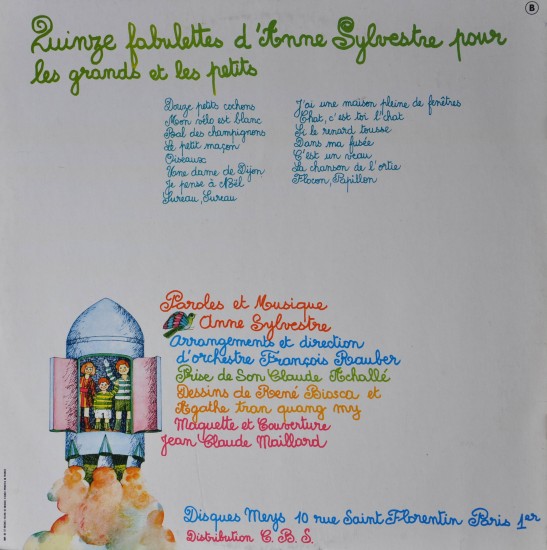 B
Quinze fabulettes d'Anne Sylvestre pour
les grands et les petits
Douze petits cochons
Mon vélo est blanc
Bal des champignons
Le petit maçon
Oiseaux
Une dame de Dijon
Je pense à Noël
Sureau, Sureau
J'ai une maison pleine de fenêtres
Chat, c'est toi l'chat
Si le renard tousse
Dans ma fusée
C'est un veau
La chanson de l'ortie
Flocon, Papillon
Paroles et Musique
Anne Sylvestre
Arrangements et direction
d'orchestre François Rauber
Prise de Son Claude Achallé
Dessins de René Biosca et
Agathe tran quang my
Maquette et Couverture
Jean Claude Maillard
Disques Meys 10 rue Saint Florentin Paris 1er
Distribution C.B.S.